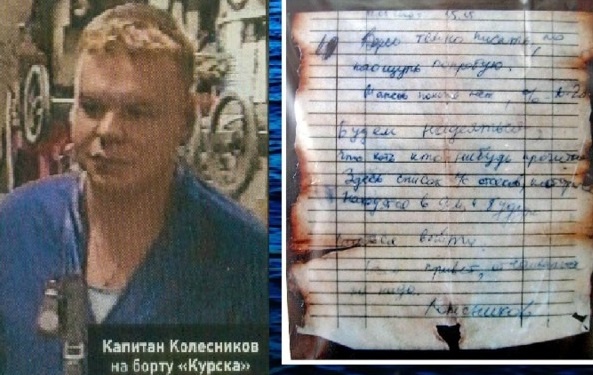 Капитан Колесников
на борту «Курска»
15.15
Здесь темно писать, но
наощупь попробую.
Шансов похоже нет, %
Будем надеяться,
что хоть кто нибудь
Здесь список отсеков,
находятся в и будут
привет, отчаиваться
не надо.
Колесников